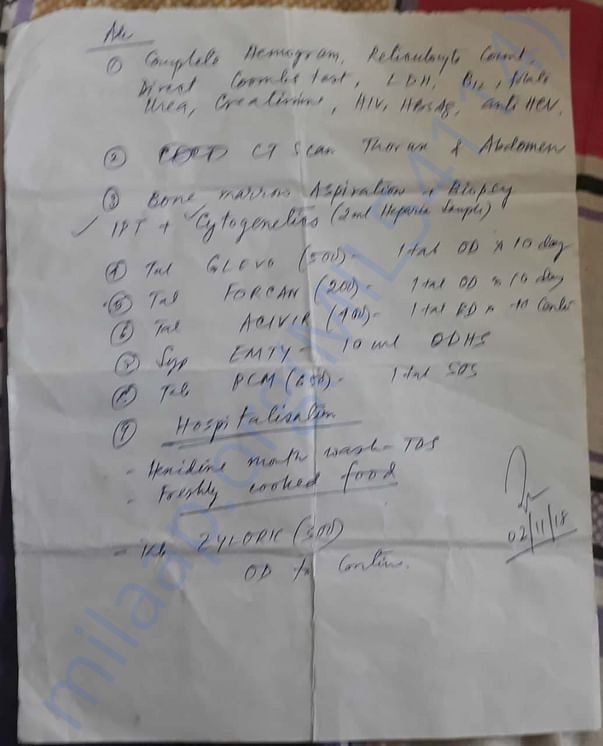 ① Complete Hemogram, Reticulocyte Count
Direct Coombs test, LDH, B12, folate
Urea, Creatinine, HIV, HBsAg, anti HCV,
② CT Scan Thorax & Abdomen
③ Bone marrow Aspiration + Biopsy
✓ IPT + ✓ Cytogenetics (2ml Heparin Sample)
④ Tab GLEVO (500) - 1 tab OD x 10 day
⑤ Tab FORCAN (200) - 1 tab OD x 10 day
⑥ Tab ACIVIR (400) - 1 tab BD x to Contin
⑦ Syp EMTY - 10 ml ODHS
⑧ Tab PCM (650) - 1 tab SOS
⑨ Hospitalisation
- Hexidine mouth wash - TDS
- Freshly cooked food
- Tab ZYLORIC (300)
OD to Contin.
02/11/18
milaap.org